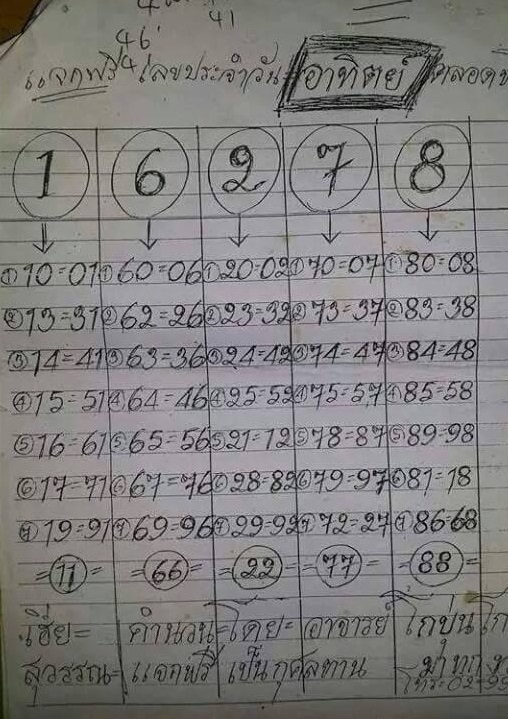 41
46
แจกฟรี เลขประจำวัน อาทิตย์ ตลอด
1 6 2 7 8
①10=01 ①60=06 ①20=02 ①70=07 ①80=08
②13=31 ②62=26 ②23=32 ②73=37 ②83=38
③14=41 ③63=36 ③24=42 ③74=47 ③84=48
④15=51 ④64=46 ④25=52 ④75=57 ④85=58
⑤16=61 ⑤65=56 ⑤21=12 ⑤78=87 ⑤89=98
⑥17=71 ⑥67=76 ⑥28=82 ⑥79=97 ⑥81=18
⑦19=91 ⑦69=96 ⑦29=92 ⑦72=27 ⑦86=68
=11= =66= =22= =77= =88=
เฮีย= คำนวน=โดย= อาจารย์
สุวรรณ= แจกฟรี เป็นกุศลทาน